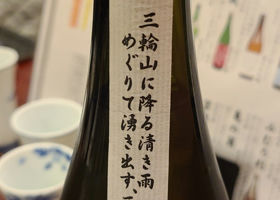 三輪山に降る清き雨
めぐりて湧き出す、